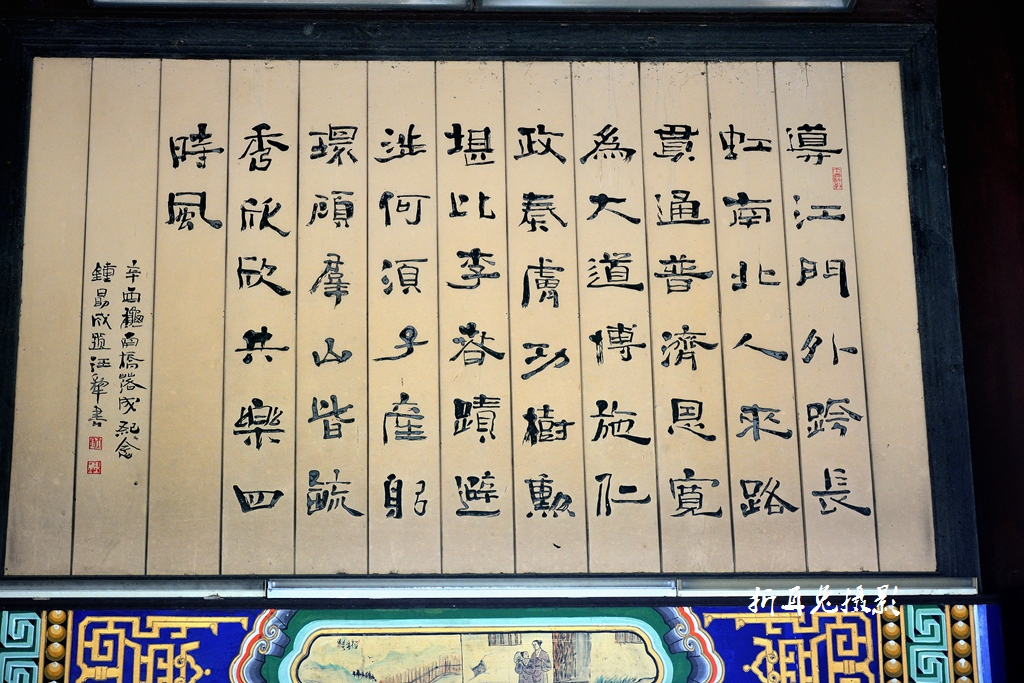 導江門外跨長
虹南北人來路
貫通普濟恩寬
為大道博施仁
政奏膚功樹勳
堪比李春蹟避
涉何須子產躬
環顧群山皆毓
秀欣欣共樂四
時風
辛酉離南橋落成紀念
鍾易成題汪犂書
折耳兔攝影